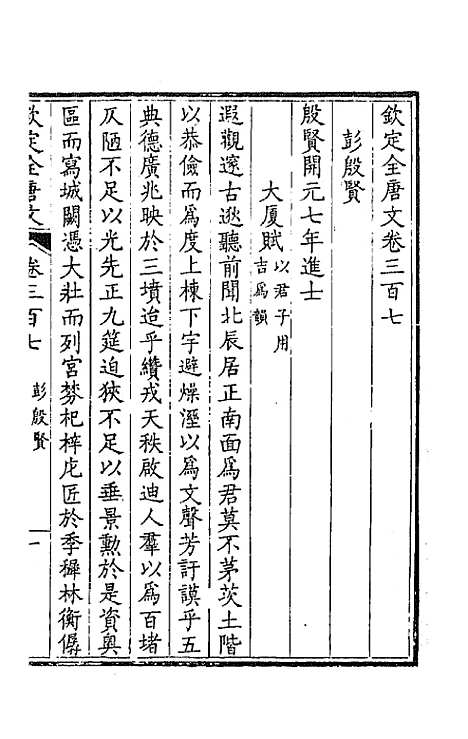 欽定全唐文卷三百七
彭殷賢
殷賢開元七年進士
大厦賦以君子用吉爲韻
遐觀邃古逖聽前聞北辰居正南面爲君莫不茅茨土階
以恭儉而爲度上棟下宇避燥溼以爲文聲芳訏謨乎五
典德廣兆映於三墳迨乎纘戎天秩啟迪人羣以爲百堵
仄陋不足以光先正九筵迫狹不足以垂景勲於是資奥
區而寫城闕憑大壯而列宮棼杞梓庀匠於季穉林衡僝
欽定全唐文 卷三百七 彭殷賢 一